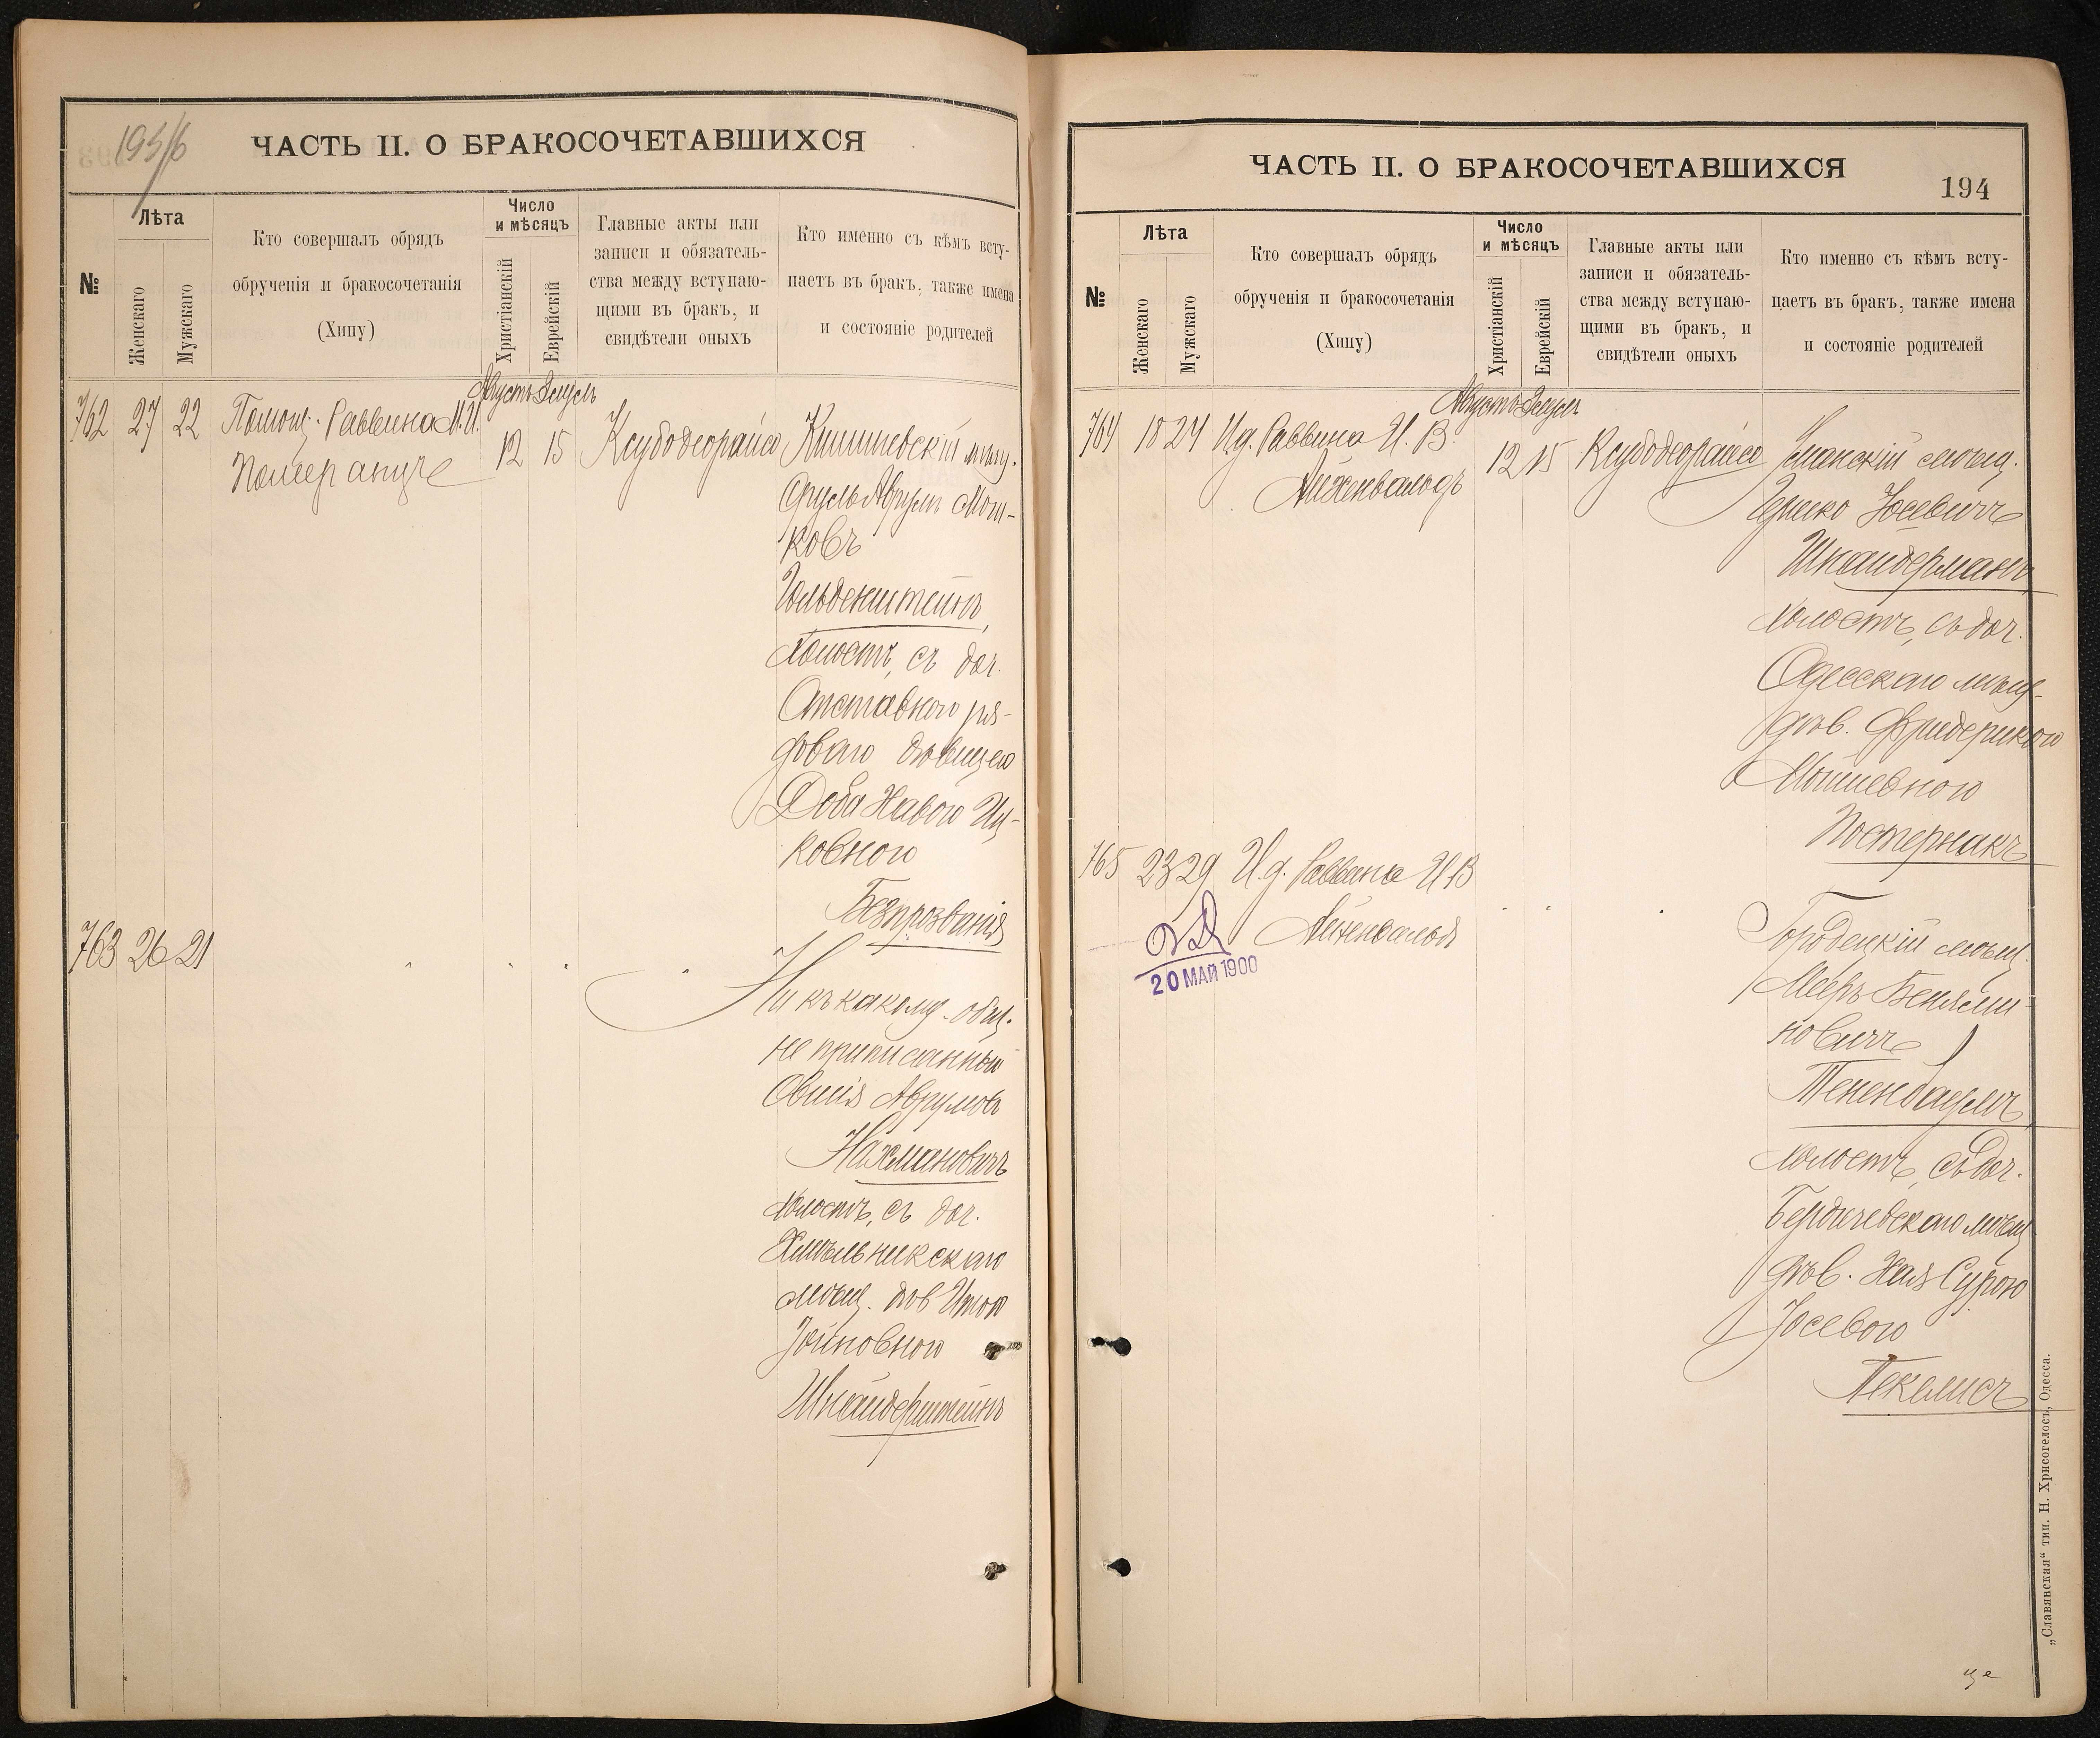 195/6
ЧАСТЬ II. О БРАКОСОЧЕТАВШИХСЯ
№
Лѣта
Женскаго
Мужскаго
Кто совершалъ обрядъ
обрученія и бракосочетанія
(Хипу)
Число
и мѣсяцъ
Христіанскій
Еврейскій
Главные акты или
записи и обязатель-
ства между вступаю-
щими въ бракъ, и
свидѣтели оныхъ
Кто именно съ кѣмъ всту-
паетъ въ бракъ, также имена
и состояніе родителей
762 27 22
Помощ. Раввина М.И.
Померанцъ
Августъ Элулъ
12 15
Ксубодеорайсо
Кишиневскій мѣщ.
Срулъ Аврумъ Мош-
ковъ
Гольденштейнъ,
холостъ, съ доч.
Отставного ря-
дового дѣвицею
Доба Хавою Иц-
ковною
Безпрозванія
763 26 21
Ни къ какому общ.
не приписанный
Овшія Аврумов
Нахмановичъ
холостъ, съ доч.
Хмѣльникскаго
мѣщ. дѣв Итою
Іойновною
Шнайдерштейнъ
ЧАСТЬ II. О БРАКОСОЧЕТАВШИХСЯ
194
№
Лѣта
Женскаго
Мужскаго
Кто совершалъ обрядъ
обрученія и бракосочетанія
(Хипу)
Число
и мѣсяцъ
Христіанскій
Еврейскій
Главные акты или
записи и обязатель-
ства между вступаю-
щими въ бракъ, и
свидѣтели оныхъ
Кто именно съ кѣмъ всту-
паетъ въ бракъ, также имена
и состояніе родителей
764 18 24
И.д. Раввина И. В.
Айхенвальдъ
Августъ Элулъ
12 15
Ксубодеорайсо
Уманскій мѣщ.
Гершко Іосевичъ
Шнайдерманъ,
холостъ, съ доч.
Одесскаго мѣщ
дѣв. Фридерикою
Мошневною
Постернакъ
765 23 29
И.д. Раввина И В
Айхенвальд
20 МАЙ 1900
Городецкій мѣщ.
Мееръ Беньями-
новичъ
Тененбаумъ,
холостъ, съ доч.
Бердичевскаго мѣщ
дѣв. Хая Сурою
Іосевою
Пекелисъ
„Славянская“ тип. Н. Хрисогелосъ, Одесса.